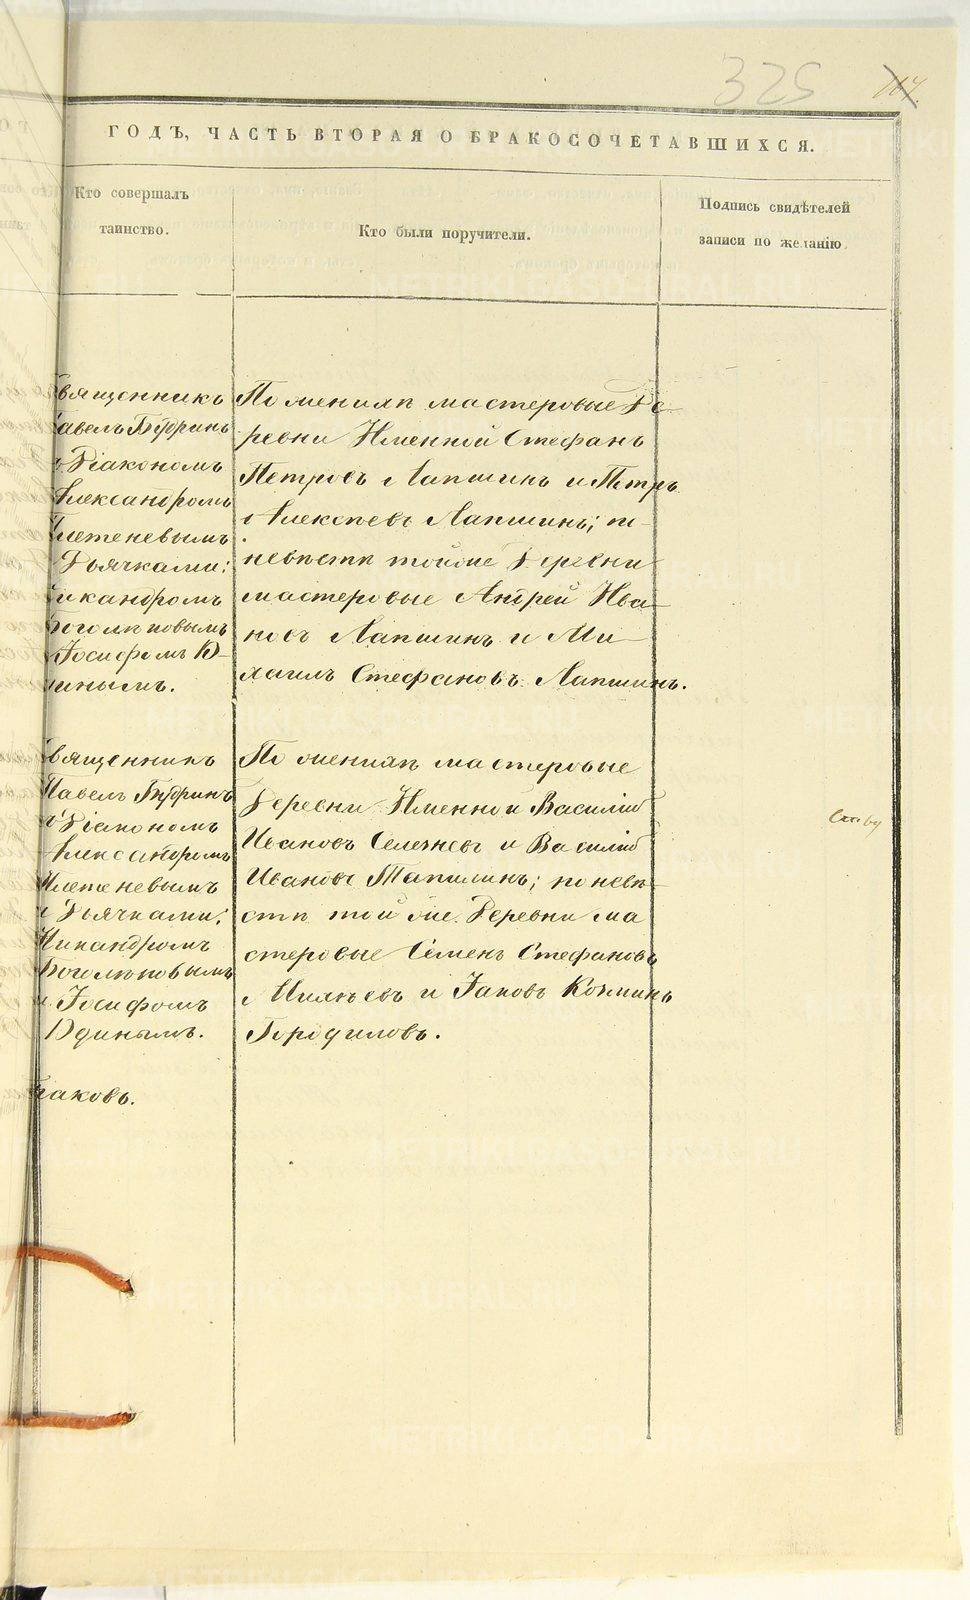 325
ГОДЪ, ЧАСТЬ ВТОРАЯ О БРАКОСОЧЕТАВШИХСЯ.
Кто совершалъ
таинство.
Кто были поручители.
Подпись свидѣтелей
записи по желанію.
Священникъ
Павелъ
съ Діакономъ
Александромъ
Плетеневымъ
и Дьячками:
Никандромъ
Боголѣповымъ
и Іосифомъ Ю-
диномъ.
По женихѣ мастеровые Де-
ревни Именной Стефанъ
Петровъ Лапшинъ и Петръ
Алексѣевъ Лапшинъ; по
невѣстѣ тойже Деревни
мастеровые Андрей Ива-
новъ Лапшинъ и Ми-
хаилъ Стефановъ Лапшинъ.
Священникъ
Павелъ
съ Діакономъ
Александромъ
Плетеневымъ
и Дьячками:
Никандромъ
Боголѣповымъ
и Іосифомъ
Юдинымъ.
По женихѣ мастеровые
Деревни Именной Василій
Ивановъ Селезневъ и Василій
Ивановъ; по невѣ-
стѣ той же Деревни ма
стеровые Семенъ Стефановъ
и Іаковъ Козминъ
Городиловъ.
браковъ.
METRIKI.GASO-URAL.RU